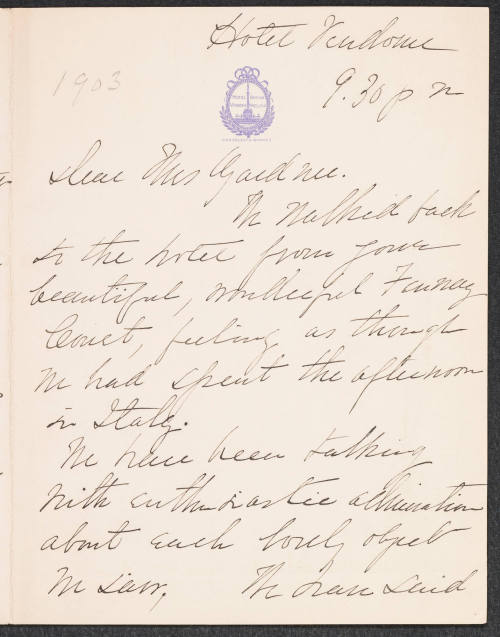 Hotel Vendome
1903
9.30 p m
Dear Mrs Gardner.
We walked back
to the hotel from your
beautiful, wonderful Fenway
Court, feeling as though
we had spent the afternoon
in Italy.
We have been talking
with enthusiastic admiration
about each lovely object
we saw, We have said